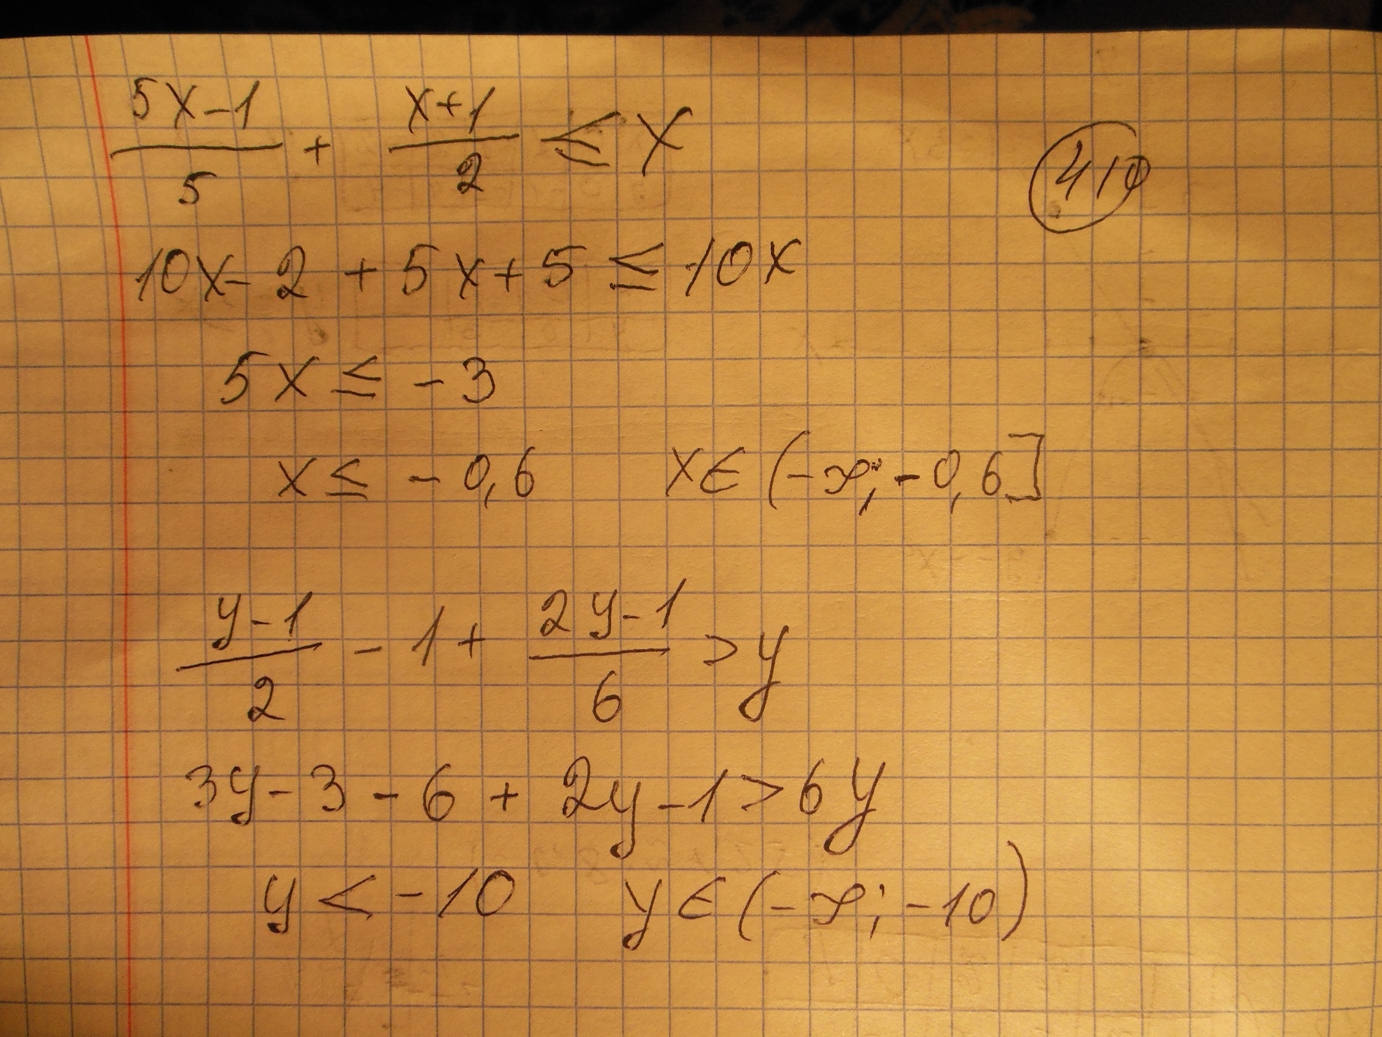 (5x-1)/5 + (x+1)/2 ≤ x
410
10x-2+5x+5 ≤ 10x
5x ≤ -3
x ≤ -0,6 x∈(-∞;-0,6]
(y-1)/2 - 1 + (2y-1)/6 > y
3y-3-6+2y-1>6y
y < -10 y∈(-∞;-10)